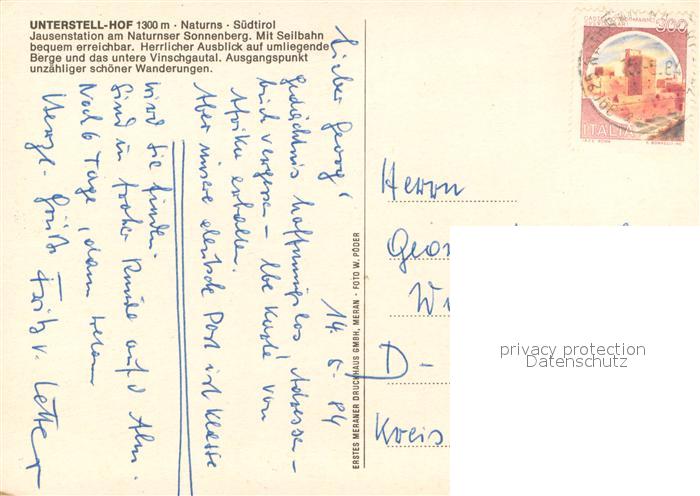 UNTERSTELL-HOF 1300 m · Naturns · Südtirol
Jausenstation am Naturnser Sonnenberg. Mit Seilbahn
bequem erreichbar. Herrlicher Ausblick auf umliegende
Berge und das untere Vinschgautal. Ausgangspunkt
unzähliger schöner Wanderungen.
14. 5. 84
Lieber Georg!
Gedächtnis hoffnungslos, Adressen-
buch vergessen – Karte von
Afrika erhalten.
Aber unsere deutsche Post ist Klasse
wird Sie finden.
Sind in froher Runde auf d Alm.
Noch 6 Tage, dann
Herzl. Grüße Fritz v.
ERSTES MERANER DRUCKHAUS GMBH, MERAN - FOTO W. PÖDER
300
ITALIA
Herrn
Geor
Wi
D -
Kreis
privacy protection
Datenschutz